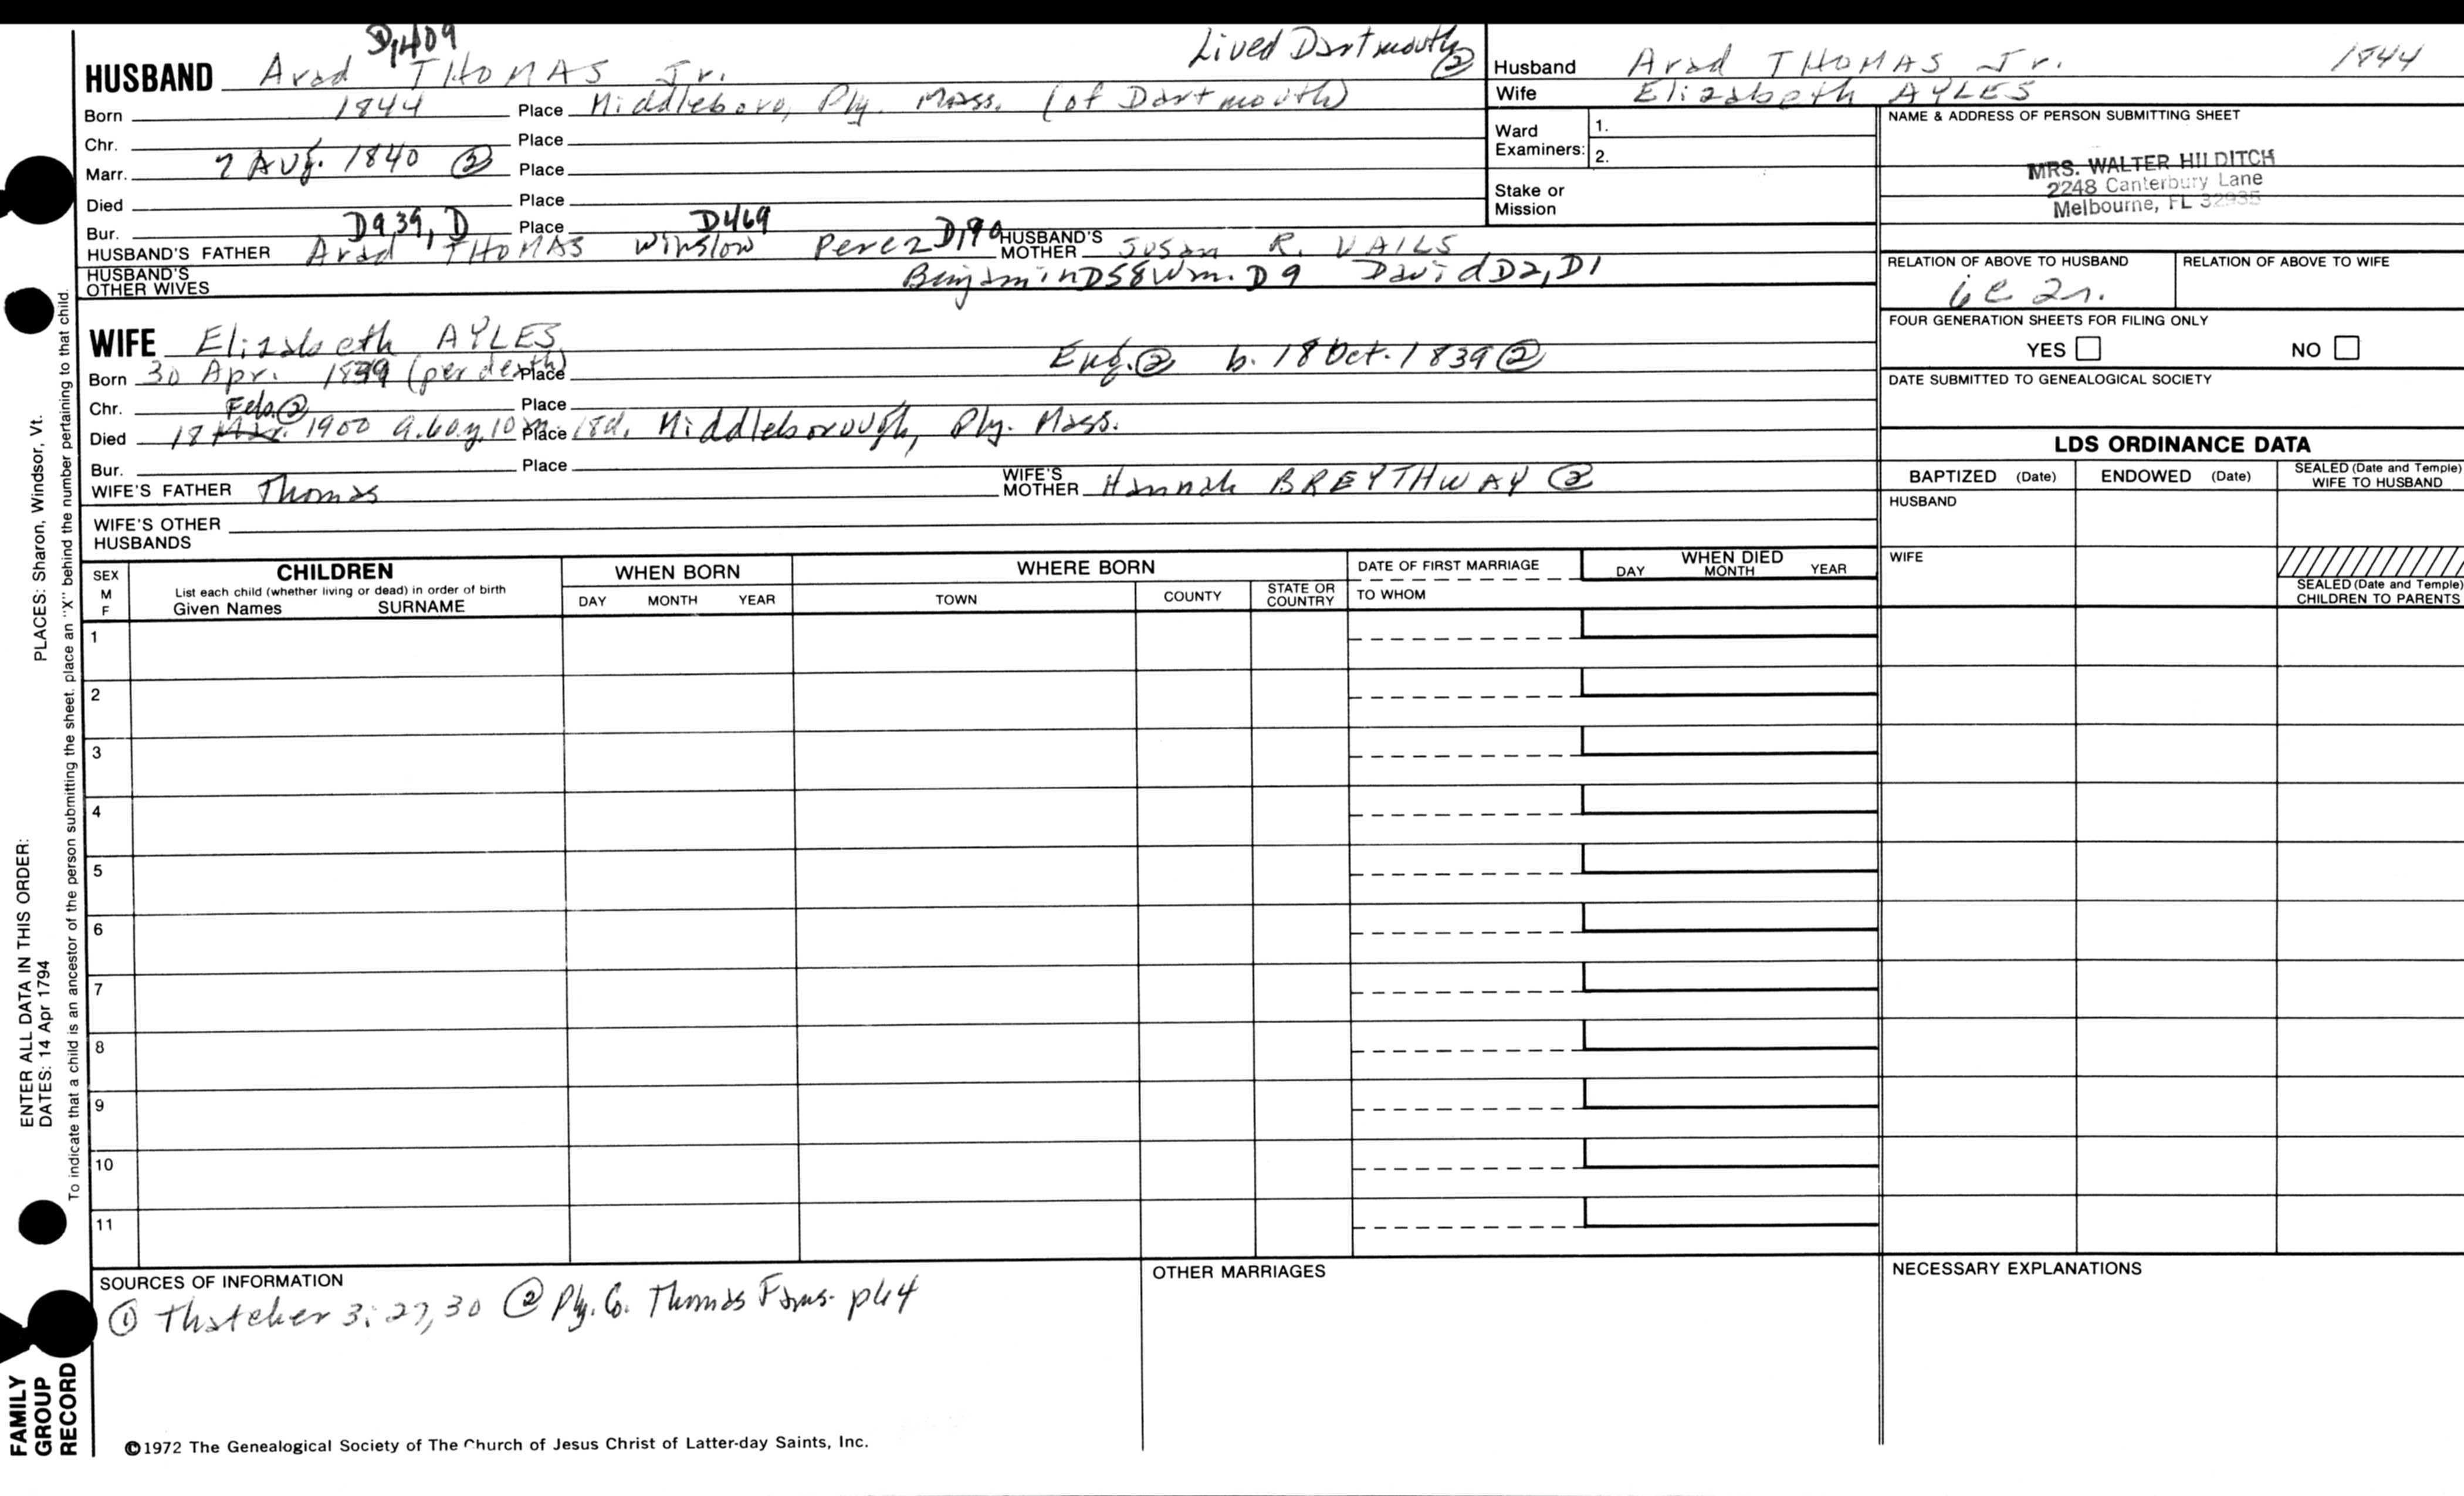 D1409
Lived Dartmouth ②
HUSBAND Arad THOMAS Jr.
Born 1844 Place Middleboro, Ply. Mass. (of Dartmouth)
Chr. Place
Marr. 7 Aug. 1840 ② Place
Died Place
Bur. Place
D939, D D469
HUSBAND'S FATHER Arad THOMAS Winslow Perez D190 HUSBAND'S MOTHER Susan R. VAILS
HUSBAND'S OTHER WIVES Benjamin D58 Wm. D9 David D2, D1
WIFE Elizabeth AYLES
Born 30 Apr. 1839 (per death) Place Eng. ② b. 18 Oct. 1839 ②
Chr. Place
Feb. ②
Died 18 Mar. 1900 a. 60 y. 10 m. 18 d. Place Middleborough, Ply. Mass.
Bur. Place
WIFE'S FATHER Thomas WIFE'S MOTHER Hannah BREYTHWAY ②
WIFE'S OTHER HUSBANDS
Husband Arad THOMAS Jr. 1844
Wife Elizabeth AYLES
Ward Examiners: 1.
2.
Stake or Mission
NAME & ADDRESS OF PERSON SUBMITTING SHEET
MRS. WALTER HILDITCH
2248 Canterbury Lane
Melbourne, FL 32935
RELATION OF ABOVE TO HUSBAND RELATION OF ABOVE TO WIFE
6c 2r.
FOUR GENERATION SHEETS FOR FILING ONLY
YES NO
DATE SUBMITTED TO GENEALOGICAL SOCIETY
LDS ORDINANCE DATA
BAPTIZED (Date) ENDOWED (Date) SEALED (Date and Temple) WIFE TO HUSBAND
HUSBAND
WIFE
SEALED (Date and Temple) CHILDREN TO PARENTS
SEX M F
CHILDREN
List each child (whether living or dead) in order of birth
Given Names SURNAME
WHEN BORN
DAY MONTH YEAR
WHERE BORN
TOWN COUNTY STATE OR COUNTRY
DATE OF FIRST MARRIAGE
TO WHOM
WHEN DIED
DAY MONTH YEAR
1
2
3
4
5
6
7
8
9
10
11
SOURCES OF INFORMATION
① Thatcher 3:27,30 ② Ply. Co. Thomas Fams. p64
OTHER MARRIAGES
NECESSARY EXPLANATIONS
©1972 The Genealogical Society of The Church of Jesus Christ of Latter-day Saints, Inc.
PLACES: Sharon, Windsor, Vt.
To indicate that a child is an ancestor of the person submitting the sheet, place an "X" behind the number pertaining to that child.
ENTER ALL DATA IN THIS ORDER:
DATES: 14 Apr 1794
FAMILY
GROUP
RECORD